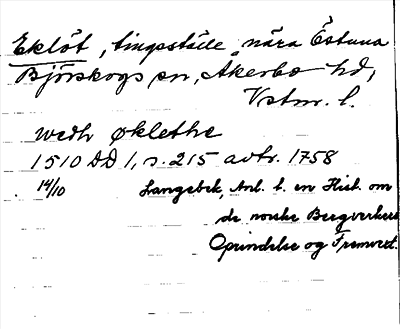 Eklöt, "tingsställe" nära Östuna
Björskogs sn, Åkerbo hd,
Vstm. l.
wedh øklethe
1510 DD 1, s. 215 avtr. 1758
14/10 Langebek, Anl. t. en Hist. om
de norske Bergverkers
Oprindelse og Fremvext.